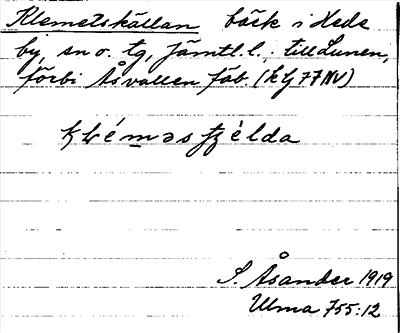 Klemetskällan bäck i Hede
by, sn o. tg, Jämtl. l., till Lunen,
förbi Åsvallen fäb. (kbg 77 NV)
S. Åsander 1919
Ulma 755:12